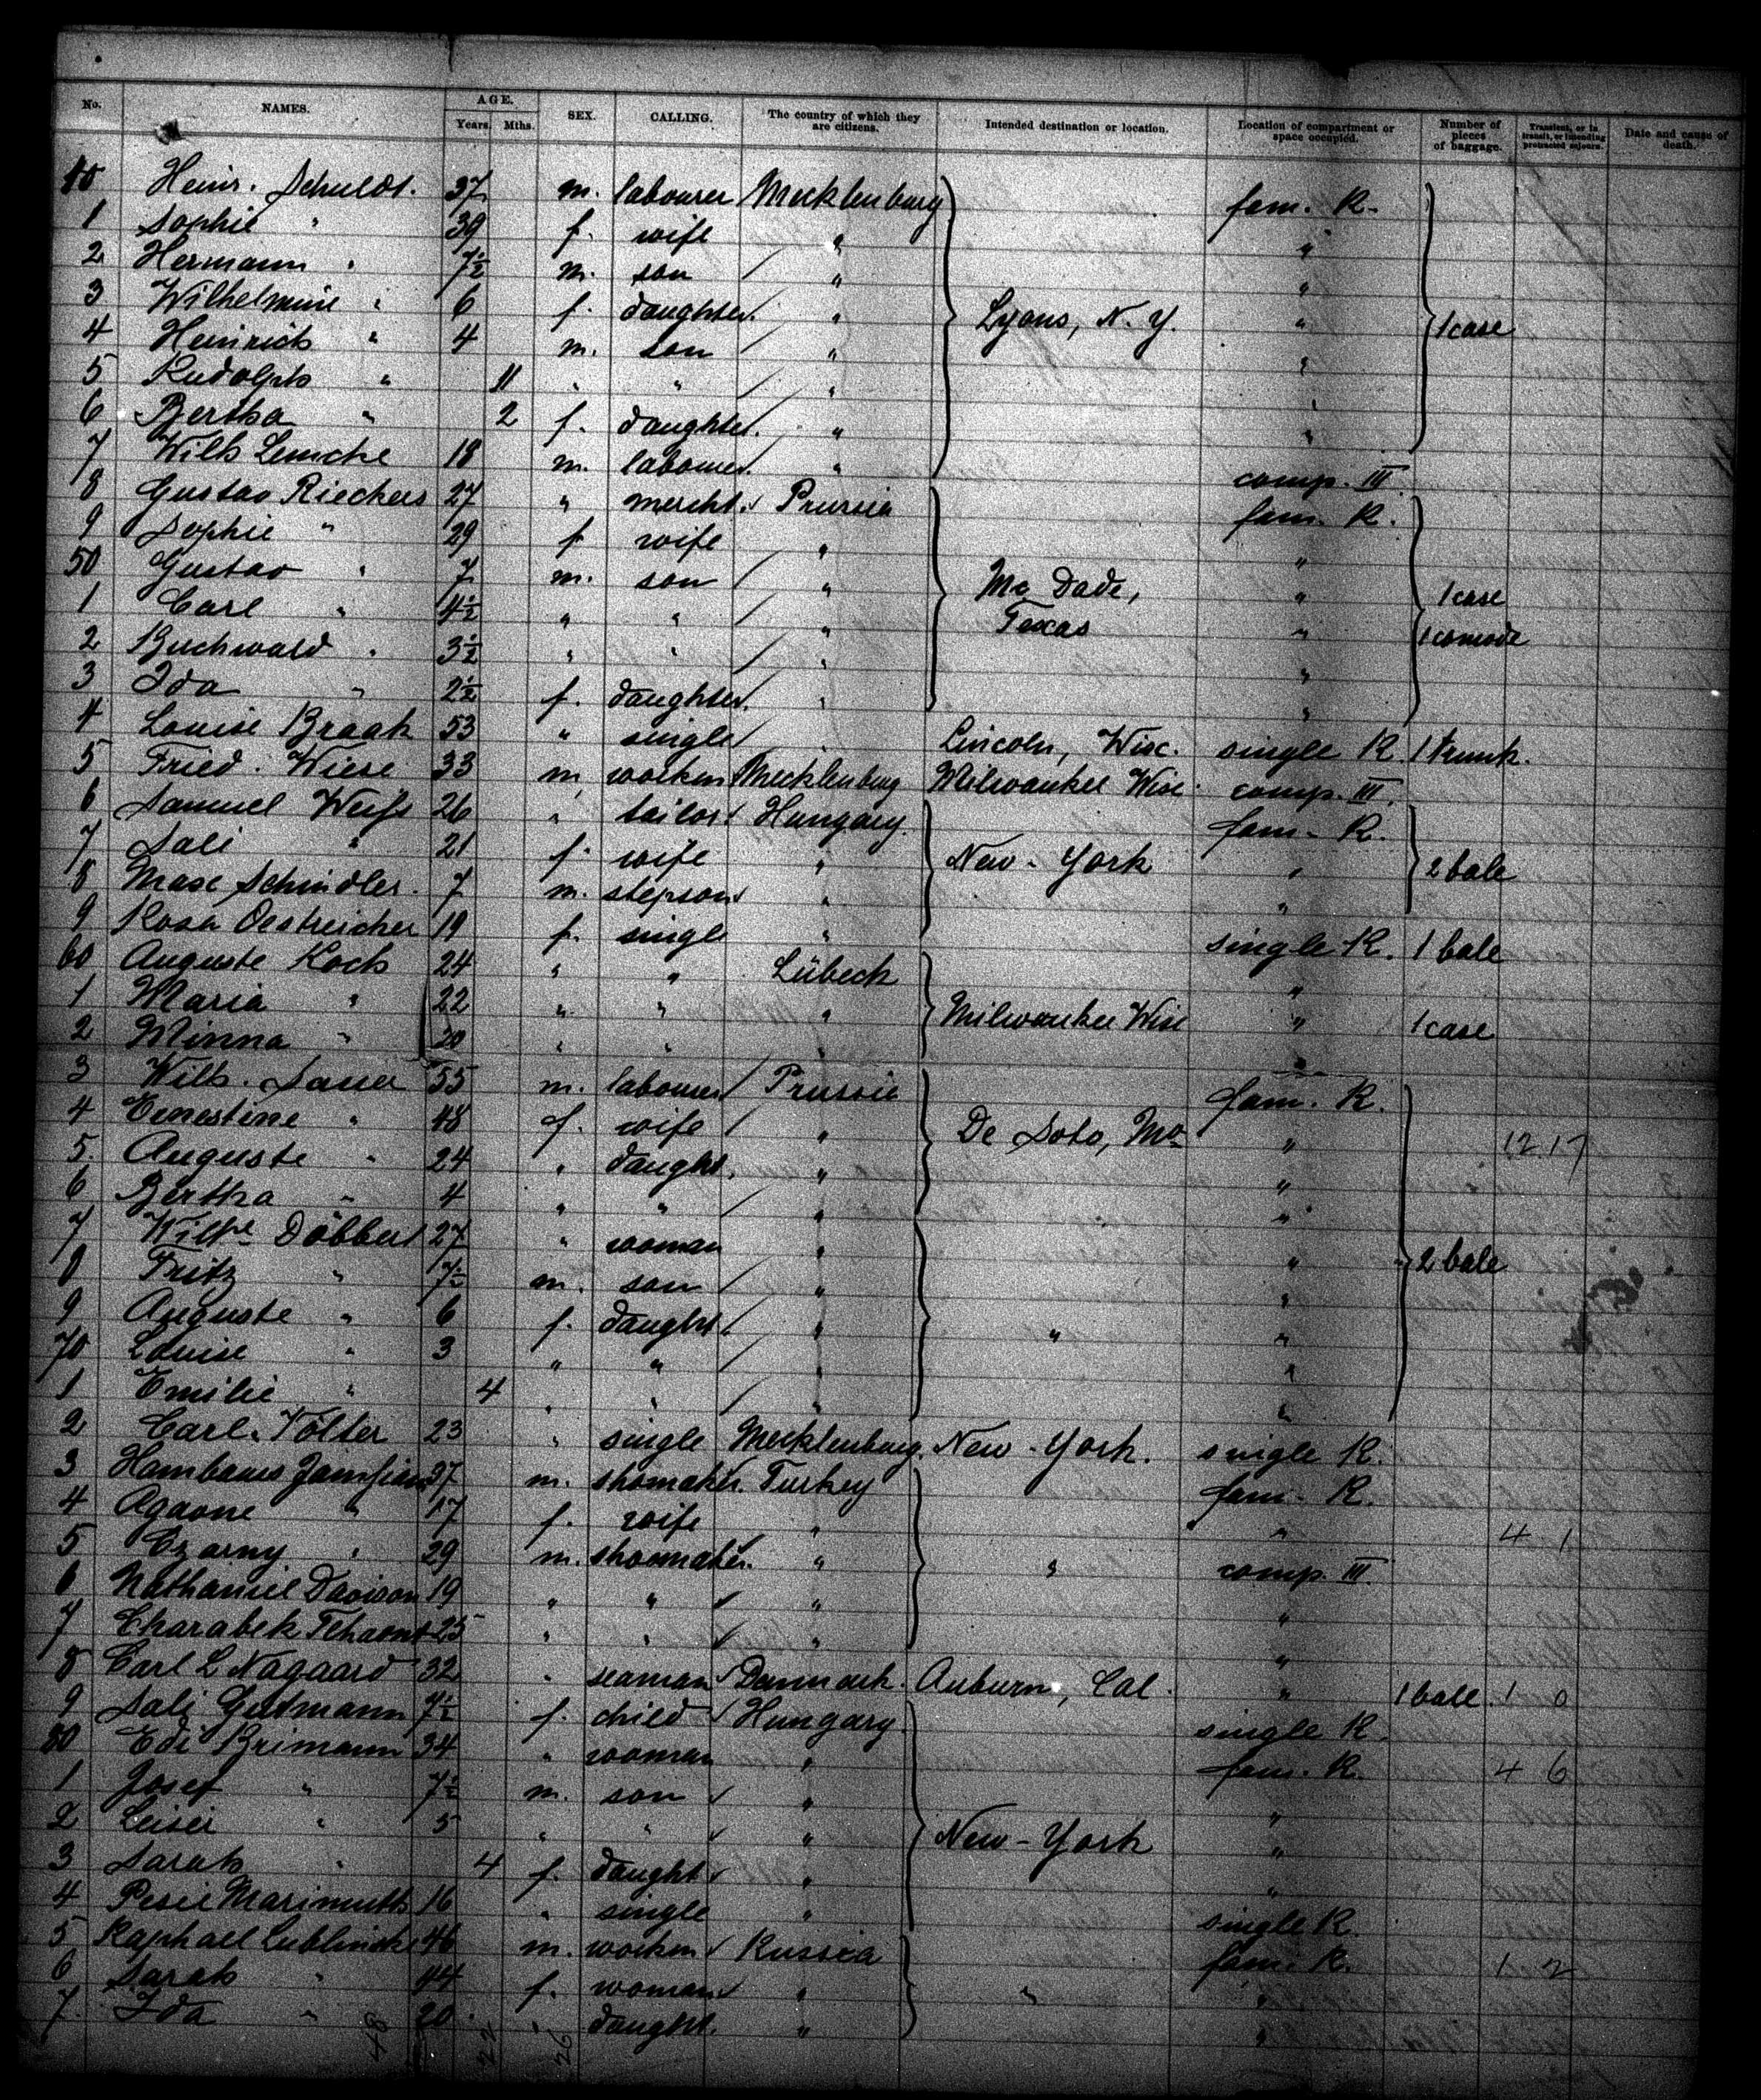 No. NAMES. AGE. Years. Mths. SEX. CALLING. The country of which they are citizens. Intended destination or location. Location of compartment or space occupied. Number of pieces of baggage. Transient, or in transit, or intending protracted sojourn. Date and cause of death.
40 Heinr. Schuldt. 37 m. labourer Mecklenburg fam. R.
1 Sophie " 39 f. wife " "
2 Hermann " 7½ m. son / " "
3 Wilhelmine " 6 f. daughter. " Lyons, N. Y. " 1 case
4 Heinrich " 4 m. son / " "
5 Rudolph " 11 " " / " "
6 Bertha " 2 f. daughter. " "
7 Wilh Lemcke 18 m. labourer. " comp. III.
8 Gustav Rieckers 27 " mercht. Prussia fam. R.
9 Sophie " 29 f wife " "
50 Gustav " 7 m. son / " Mc Dade, " 1 case
1 Carl " 4½ " " / " Texas " 1 comode
2 Buchwald " 3½ " " / " "
3 Ida " 2½ f. daughter. " "
4 Louise Braak 53 " single / " Lincoln, Wisc. single R. 1 trunk.
5 Fried. Wiese 33 m workm Mecklenburg Milwaukee Wisc. comp. III.
6 Samuel Weiß 26 " tailor Hungary. fam. R.
7 Sali " 21 f. wife " New-York " 2 bale
8 Max Schindler. 7 m. stepson " "
9 Rosa Oestreicher 19 f. single " single R. 1 bale
60 Auguste Koch 24 " " Lübeck "
1 Maria " 22 " " " Milwaukee Wisc " 1 case
2 Minna " 20 " " " "
3 Wilh. 55 m. labourer / Prussia fam. R.
4 Ernestine " 48 f. wife / " De Soto, Mo " 12 17
5. Auguste " 24 " daught. " "
6 Bertha " 4 " " / " "
7 Wilhe Döbbert 27 " woman " " 2 bale
8 Fritz " 7½ m. son / " "
9 Auguste " 6 f. daught. " " "
70 Louise " 3 " " / " "
1 Emilie " 4 " " / " "
2 Carl. Tölter 23 " single Mecklenburg. New-York. single R.
3 37 m. shomaker. Turkey fam. R.
4 Agavne " 17 f. wife " " 4 1
5 Czarny " 29 m. shoemaker. " " comp. III.
6 Nathaniel Davison 19 " " " "
7 Charabek 25 " " " "
8 Carl L Nagaard 32 " seaman Danmark. Auburn, Cal. " 1 bale. 1 0
9 Sali Gutmann 7½ f. child Hungary single R.
80 Edi Brimann 34 " woman " fam. R. 4 6
1 Josef " 7½ m. son " "
2 Leiser " 5 " " " New-York "
3 Sarah " 4 f. daught " "
4 Pesie Marimuth 16 " single " single R.
5 Raphael Lublinski 46 m. workm Russia fam. R. 1 2
6 Sarah " 44 f. woman " " "
7. Ida " 20. " daught. " "
48 22 26